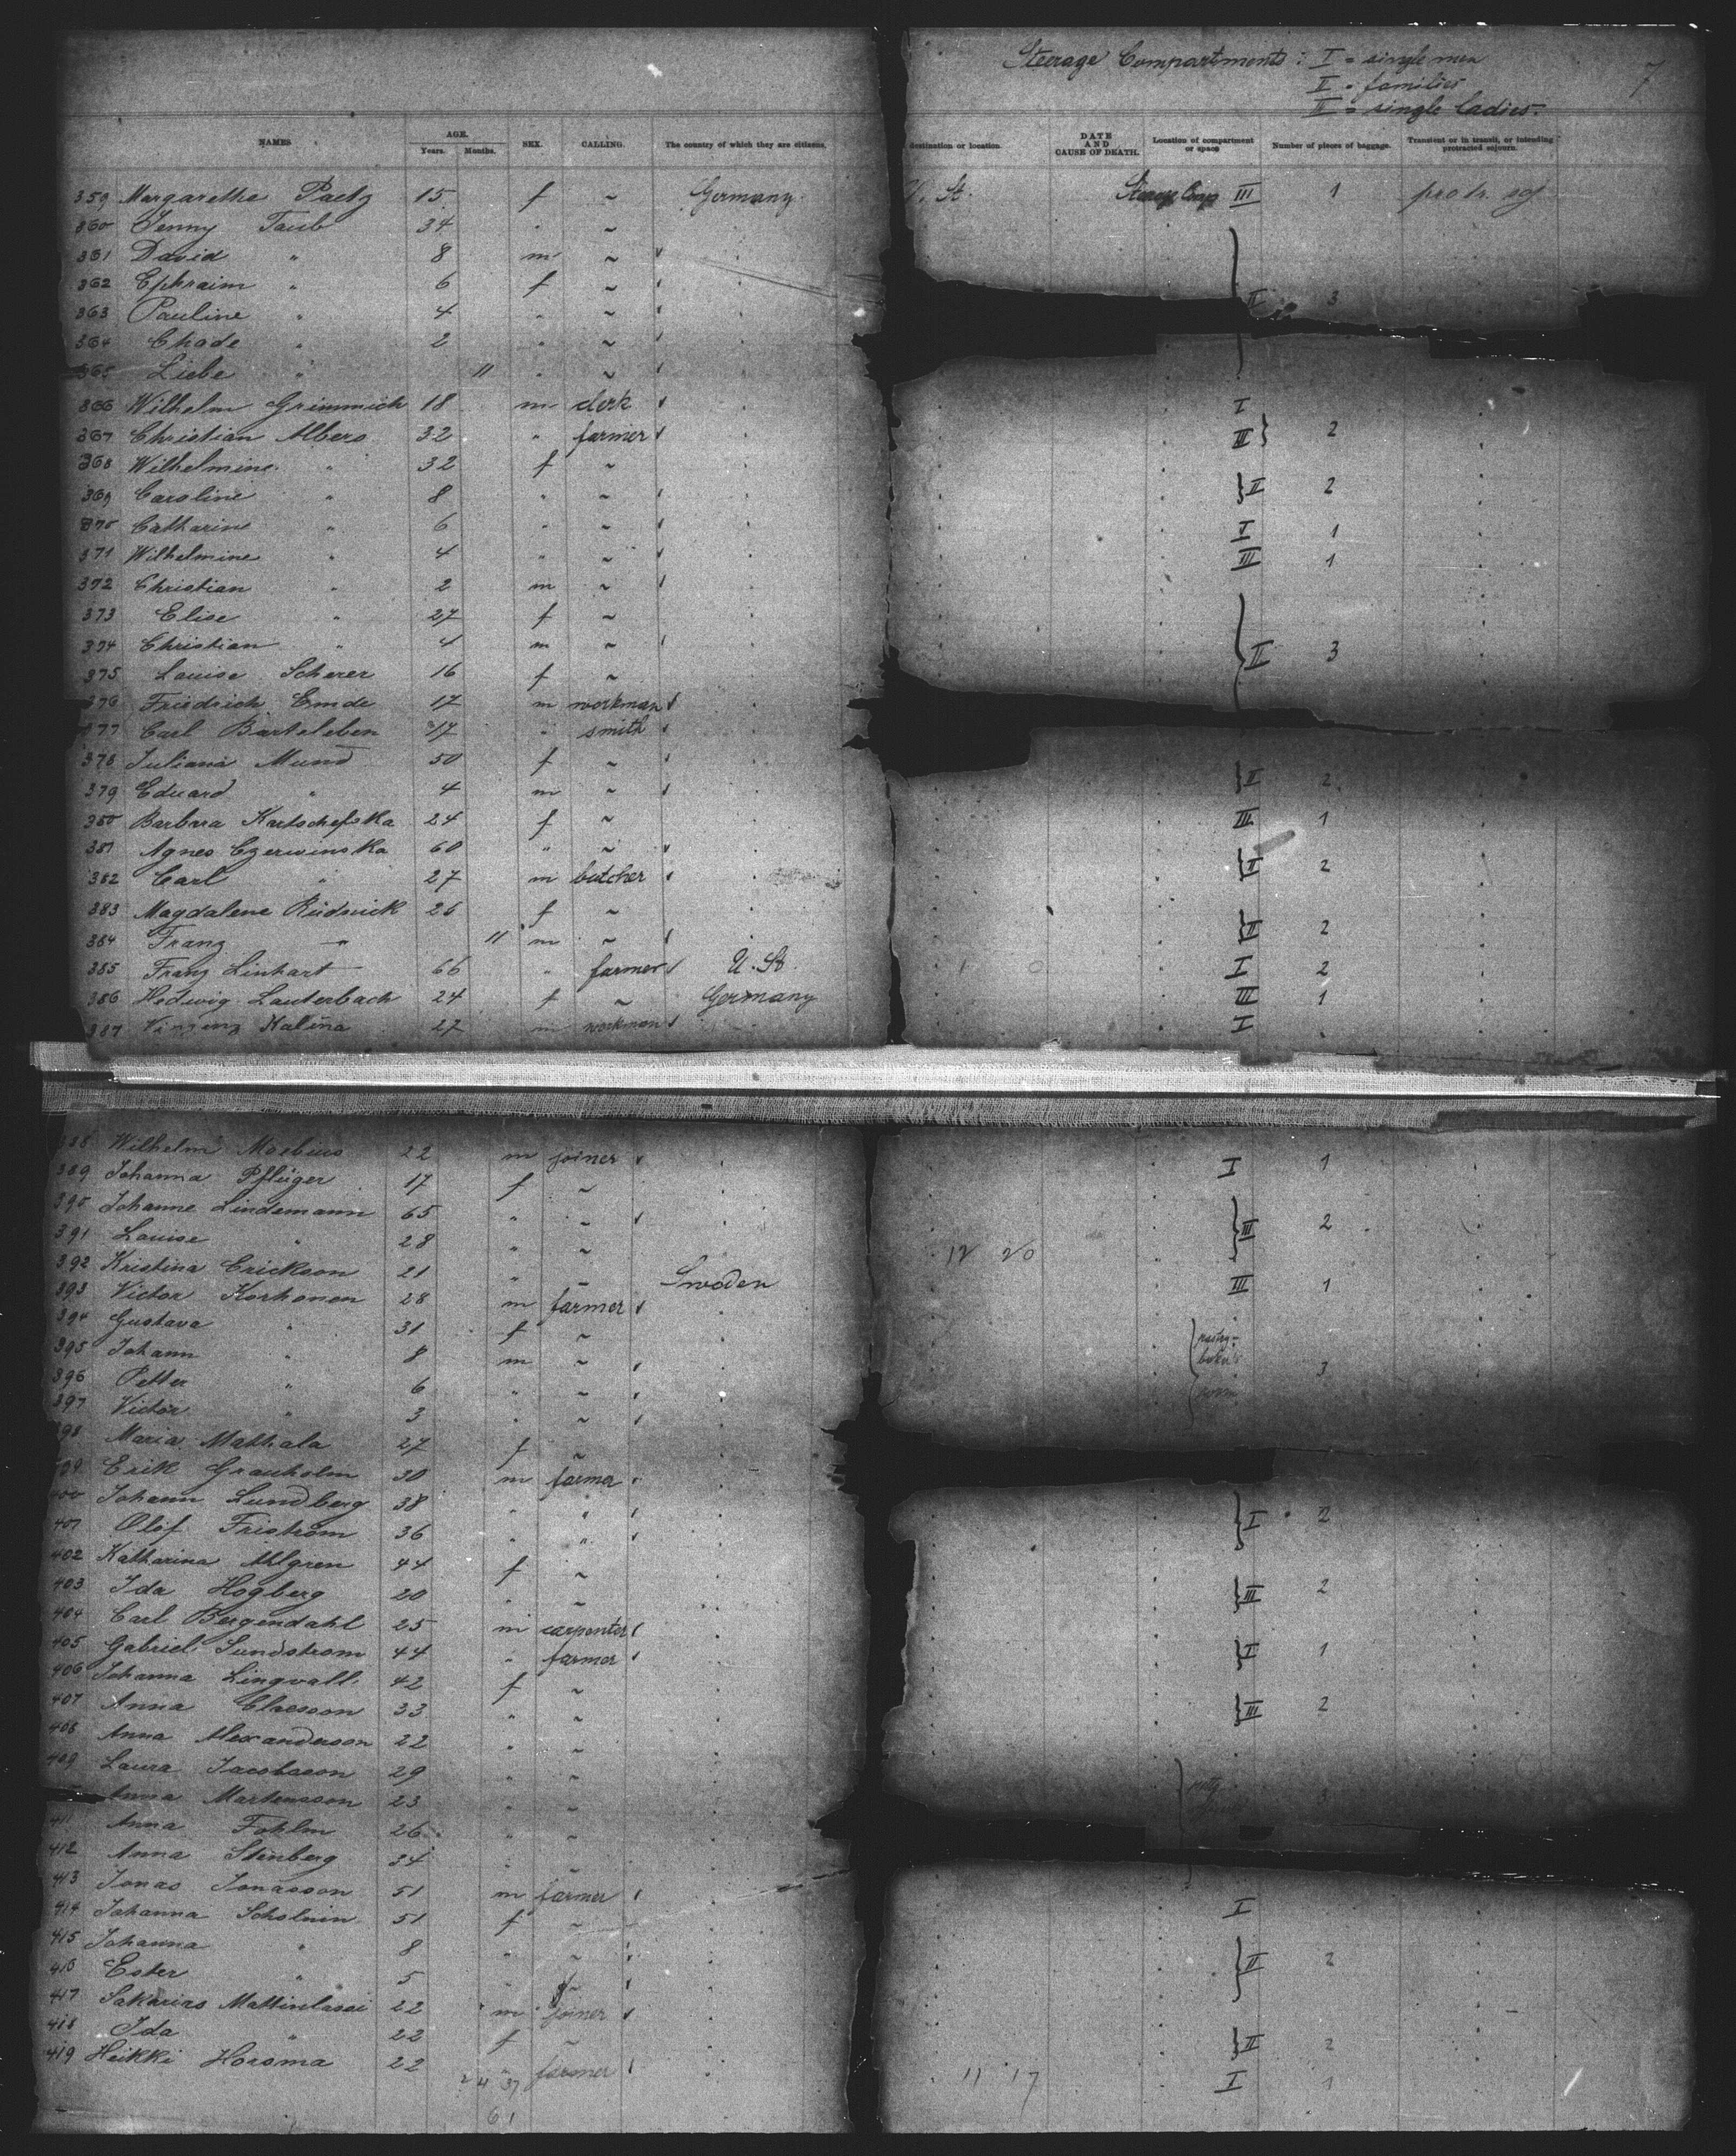 Steerage Compartments: I = single men
II = families
III = single ladies.
7
NAMES AGE. Years. Months. SEX. CALLING. The country of which they are citizens. destination or location. DATE AND CAUSE OF DEATH. Location of compartment or space Number of pieces of baggage. Transient or in transit, or intending protracted sojourn.
359 Margaretha Paetz 15 f ~ Germany. U. St. Steerage Comp III 1 protr. soj
360 Jenny Taub 34 " ~
361 David " 8 m ~
362 Ephraim " 6 f ~ II 3
363 Pauline " 4 " ~
364 Chade " 2 " ~
365 Liebe " 11 " ~
366 Wilhelm Grimmich 18 m clerk I
367 Christian Albers 32 " farmer III 2
368 Wilhelmine " 32 f ~
369 Caroline " 8 " ~ II 2
370 Catharine " 6 " ~ I 1
371 Wilhelmine " 4 " ~ III 1
372 Christian " 2 m ~
373 Elise " 27 f ~
374 Christian " 4 m ~ II 3
375 Louise Scherer 16 f ~
376 Friedrich Emde 17 m workman
377 Carl Barteleben 17 " smith
378 Juliana Mund 50 f ~ II 2
379 Eduard " 4 m ~
380 Barbara Kartschefska 24 f ~ III 1
381 Agnes Czerwinska 60 " ~
382 Carl " 27 m butcher II 2
383 Magdalene Rüdnick 26 f ~
384 Franz " 11 m ~ II 2
385 Franz Linhart 66 " farmer U. St. I 2
386 Hedwig Lauterbach 24 f ~ Germany III 1
387 Vinzenz Kalina 27 m workman I
388 Wilhelm Moebius 22 m joiner I 1
389 Johanna Pflüger 17 f ~
390 Johanne Lindemann 65 " ~ III 2
391 Louise " 28 " ~
12 20
392 Kristina Erickson 21 " ~ Sweden III 1
393 Victor Korhonen 28 m farmer
394 Gustava " 31 f ~
395 Johann " 8 m ~ 3
396 Petter " 6 " ~
397 Victor " 3 " ~
398 Maria Mattala 27 f ~
399 Erik Granholm 30 m farmer
400 Johann Lundberg 38 " " I 2
401 Olof Friström 36 " "
402 Katharina Ahlgren 44 f ~
403 Ida Hogberg 20 " ~ III 2
404 Carl Bergendahl 25 m carpenter
405 Gabriel Sundstrom 44 " farmer I 1
406 Johanna Lingvall 42 f ~
407 Anna Claesson 33 " ~ III 2
408 Anna Alexanderson 22 " ~
409 Laura Jacobsson 29 " ~
Anna Martensson 23 " ~
411 Anna Fohlm 26 " ~
412 Anna Stenberg 34 " ~
413 Jonas Jonasson 51 m farmer I
414 Johanna Scholnin 51 f ~
415 Johanna " 8 " ~ II 2
416 Ester " 5 " ~
417 Sakarias Mattinlassi 22 m joiner
418 Ida " 22 f ~ II 2
419 Heikki Horsma 22 " farmer I 1
11 17
61